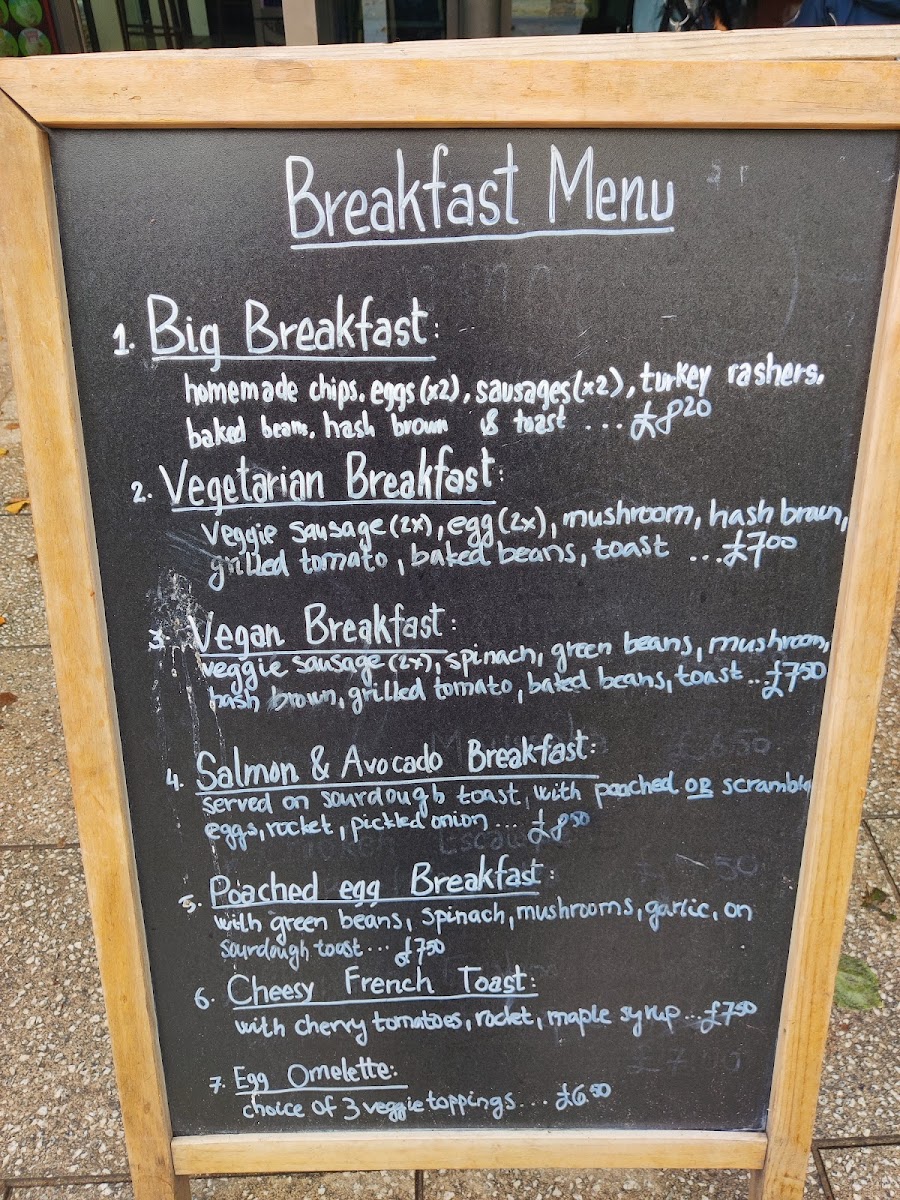 Breakfast Menu
1. Big Breakfast:
homemade chips, eggs (x2), sausages (x2), turkey rashers,
baked beans, hash brown & toast ... £8.20
2. Vegetarian Breakfast:
Veggie sausage (2x), egg (2x), mushroom, hash brown,
grilled tomato, baked beans, toast ... £7.00
3. Vegan Breakfast:
veggie sausage (2x), spinach, green beans, mushroom,
hash brown, grilled tomato, baked beans, toast ... £7.50
4. Salmon & Avocado Breakfast:
served on sourdough toast, with poached OR scrambled
eggs, rocket, pickled onion ... £8.50
5. Poached egg Breakfast:
with green beans, spinach, mushrooms, garlic, on
sourdough toast ... £7.50
6. Cheesy French Toast:
with cherry tomatoes, rocket, maple syrup ... £7.50
7. Egg Omelette:
choice of 3 veggie toppings ... £6.50